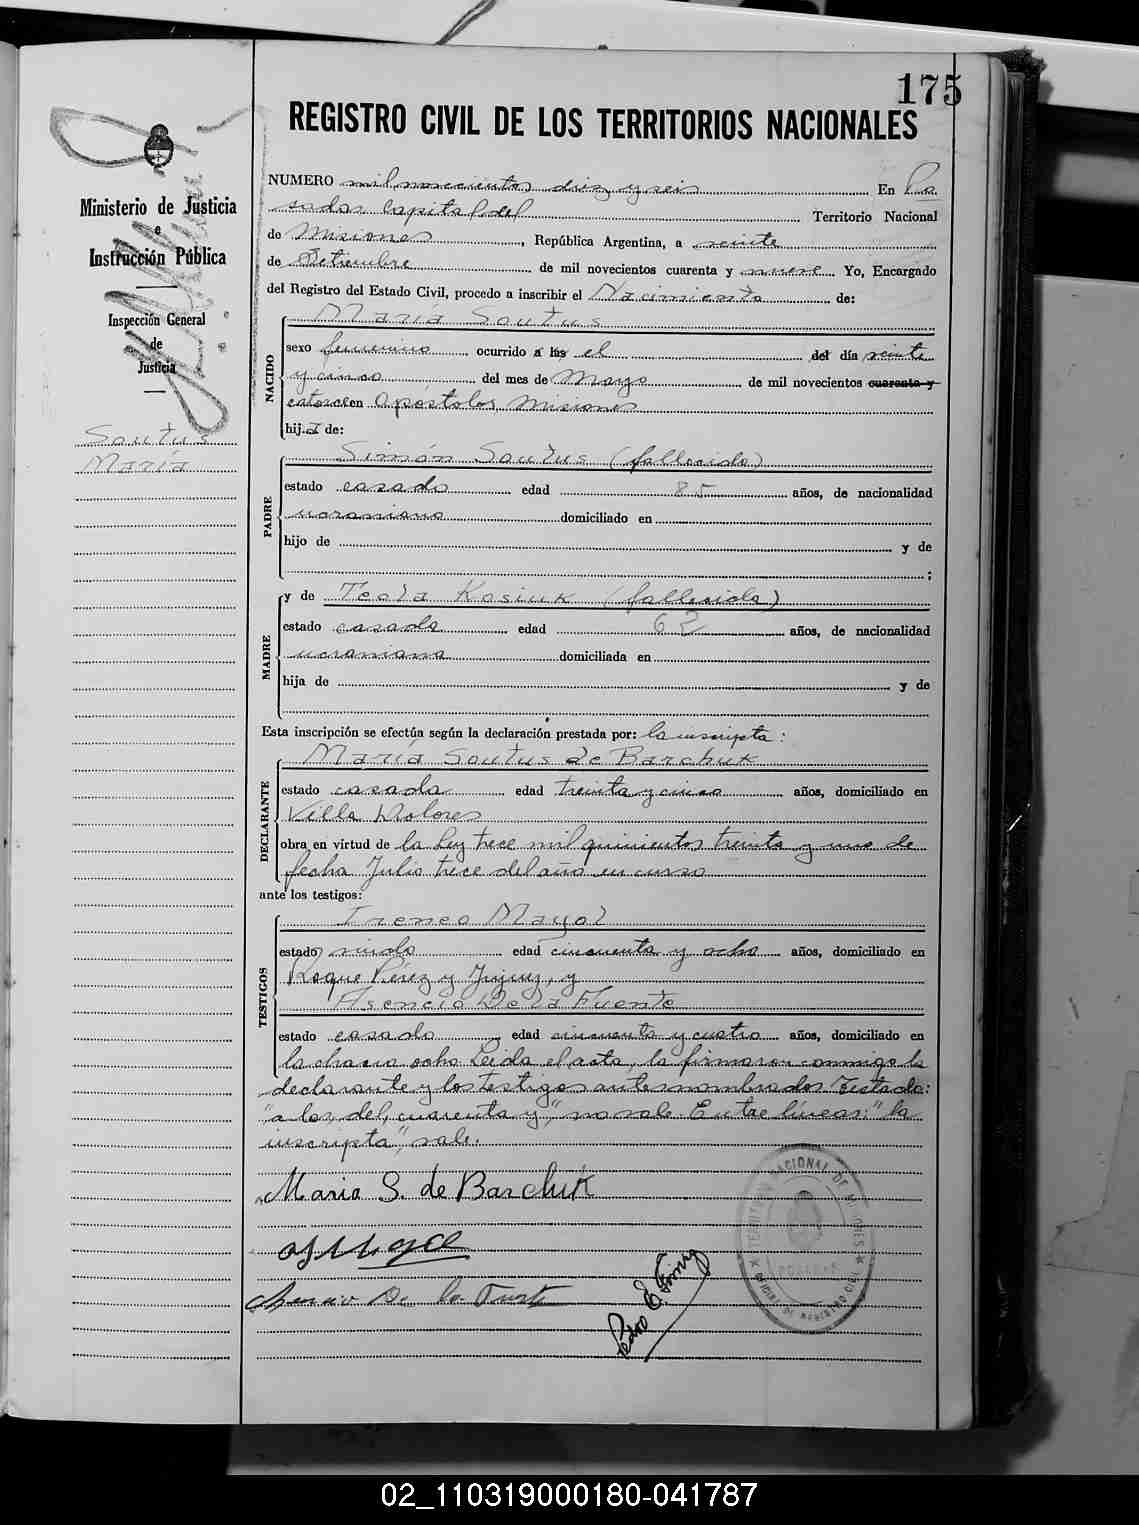 175
REGISTRO CIVIL DE LOS TERRITORIOS NACIONALES
Ministerio de Justicia
e
Instrucción Pública
Inspección General
de
Justicia
Soutus
María
NUMERO mil novecientos diez y seis En Po
sadas Capital del Territorio Nacional
de Misiones, República Argentina, a veinte
de Setiembre de mil novecientos cuarenta y nueve Yo, Encargado
del Registro del Estado Civil, procedo a inscribir el Nacimiento de:
NACIDO
María Soutus
sexo femenino ocurrido a las el del día veinte
y cinco del mes de Mayo de mil novecientos cuarenta y
catorce en Apóstoles, Misiones
hija de:
PADRE
Simón Soutus (fallecido)
estado casado edad 85 años, de nacionalidad
ucraniano domiciliado en
hijo de y de
;
MADRE
y de Tecla Kosiuk (fallecida)
estado casada edad 62 años, de nacionalidad
ucraniana domiciliada en
hija de y de
Esta inscripción se efectúa según la declaración prestada por: la inscripta:
DECLARANTE
María Soutus de Barchuk
estado casada edad treinta y cinco años, domiciliado en
Villa Dolores
obra en virtud de la Ley trece mil quinientos treinta y uno de
fecha Julio trece del año en curso
ante los testigos:
TESTIGOS
Ireneo Mayol
estado viudo edad cincuenta y ocho años, domiciliado en
Roque Pérez y Jujuy, y
Asencio De la Fuente
estado casado edad cincuenta y cuatro años, domiciliado en
la chacra ocho Leida el acta, la firmaron conmigo la
declarante y los testigos antes nombrados Testado:
"a las, del, cuarenta y", no vale. Entre líneas: "la
inscripta", vale.
Maria S. de Barchuk
De la Fuente
Pedro E.
TERRITORIO NACIONAL DE MISIONES
POSADAS
02_110319000180-041787